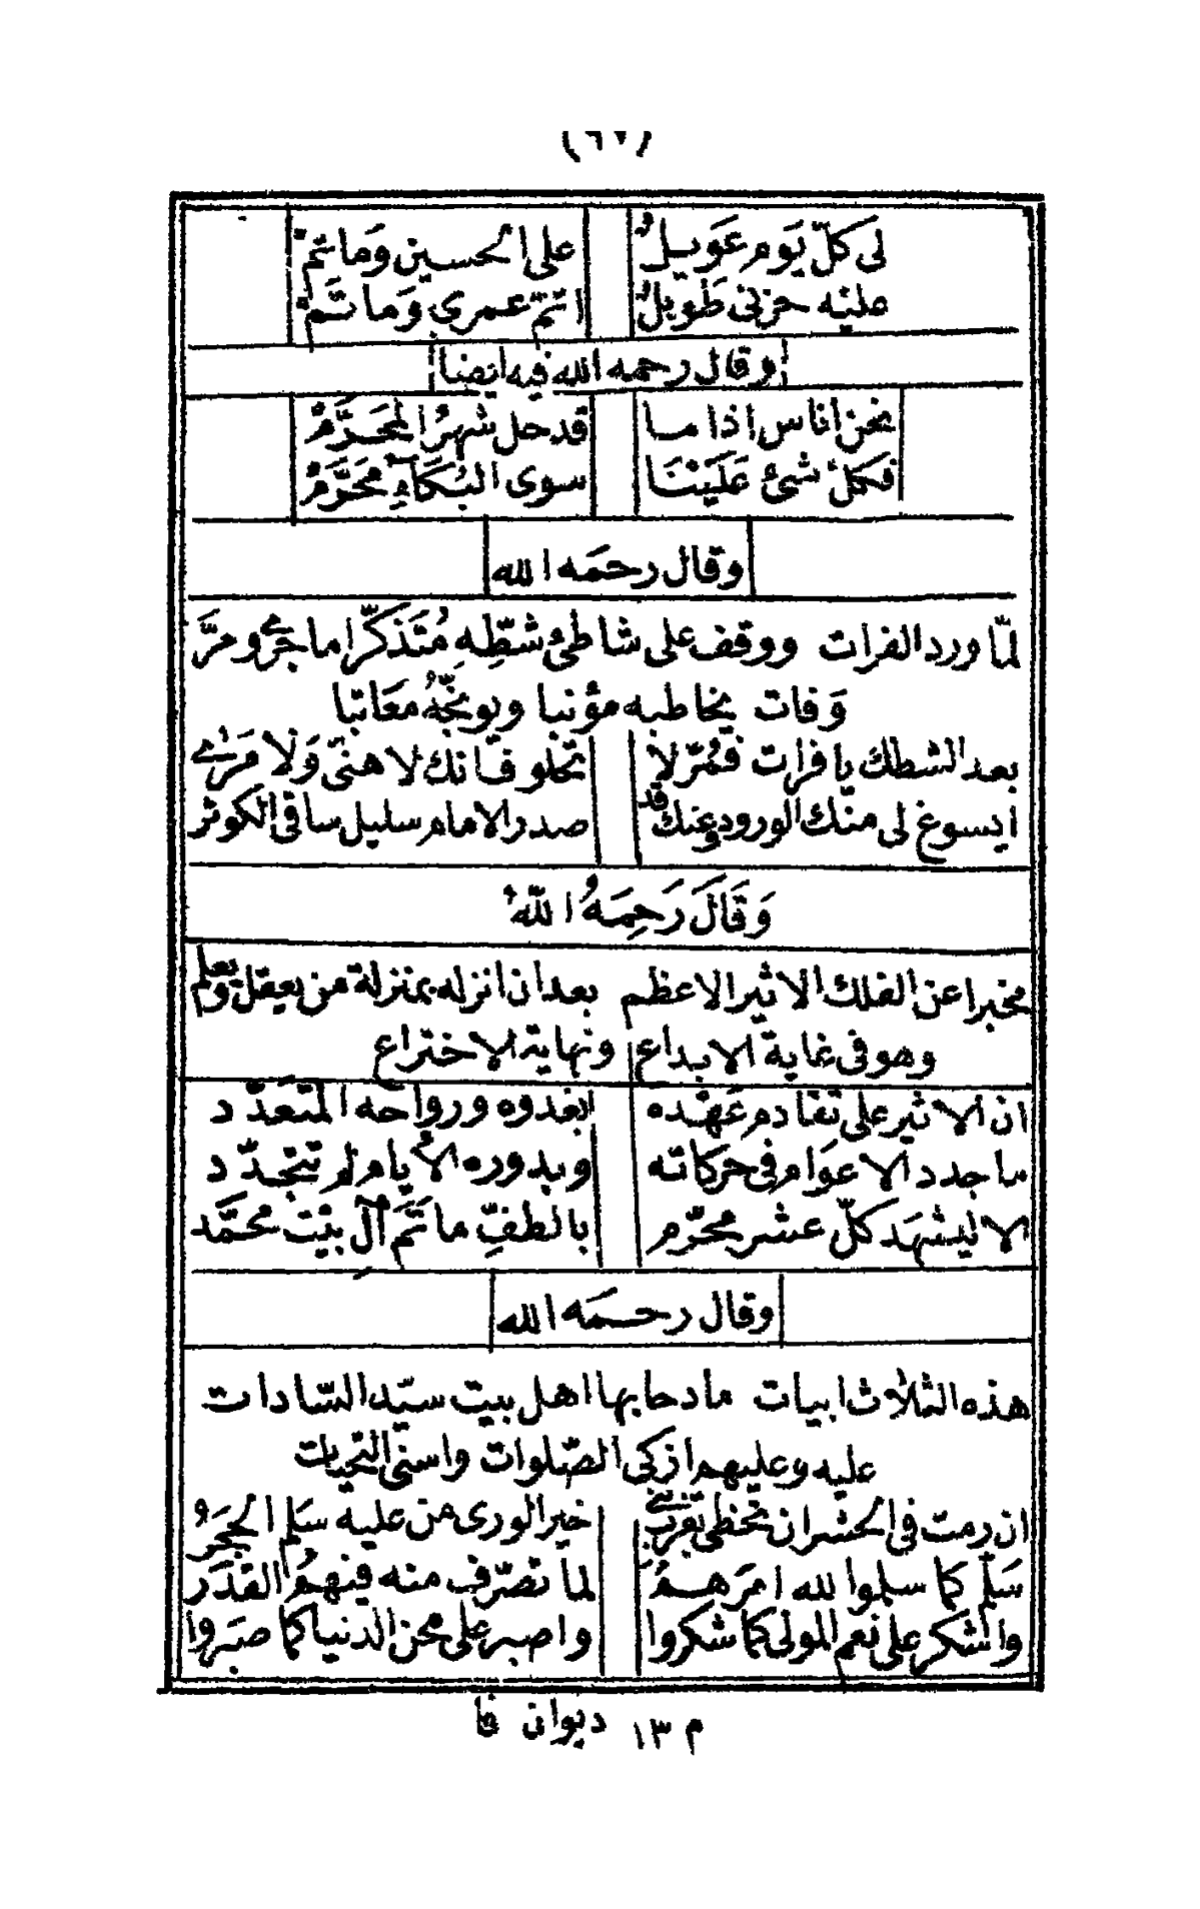 (٦٧)
لى كلّ يَوم عَويلٌ على الحسين وَماتمّ
عليْه حزنى طَويلٌ اتمّ عمرى وَما تَمّ
وقال رحمه الله فيه ايضا
نحن اناس اذا ما قد حل شهرُ المحَرَّمْ
فكلّ شئ عَلَيْنَا سوى البُكَآءِ محَرَّمْ
وقال رحمَه الله
لمّا ورد الفرات ووقف على شاطئ شطِّهِ مُتَذكّرا ما جرى ومرَّ
وَفات يخاطبه مؤنبا ويوبخّهُ معَاتبا
بعد الشطك يا فرات فمُرّ لا تحلو فانك لا هنى وَلا مَرى
ايسوغ لى منك الورود وعنك قد صدر الامام سليل ساقى الكوثر
وَقَالَ رَحِمَهُ اللّهُ
مخبرا عن الفلك الاثير الاعظم بعد ان انزله بمنزلة من يعقل ويعلم
وهو فى غاية الابداع ونهاية الاختراع
ان الاثير على تقادم عَهْده بغدوه ورواحه المتعَدّد
ما جدد الاعوام فى حركاته وبدوره الأيام لم تتجدّد
الا ليشهَد كلّ عشر محرّم بالطفِّ ماتَمَ آلِ بيْت محمَّد
وقال رحمَه الله
هذه الثلاث ابيات مادحا بها اهل بيت سيّد السّادات
عليه وعليهم ازكى الصّلوات واسنى التحيات
ان رمت فى الحشر ان تحظى بقرب بنى خير الورى من عليه سَلم الحجَرُ
سَلّم كما سلموا لله امرَهمُ لما تصرّف منه فيهمُ القدَر
والشكر على نعم المولى كما شكروا واصبر على محن الدنيا كما صبَروا
م ١٣ ديوان فا